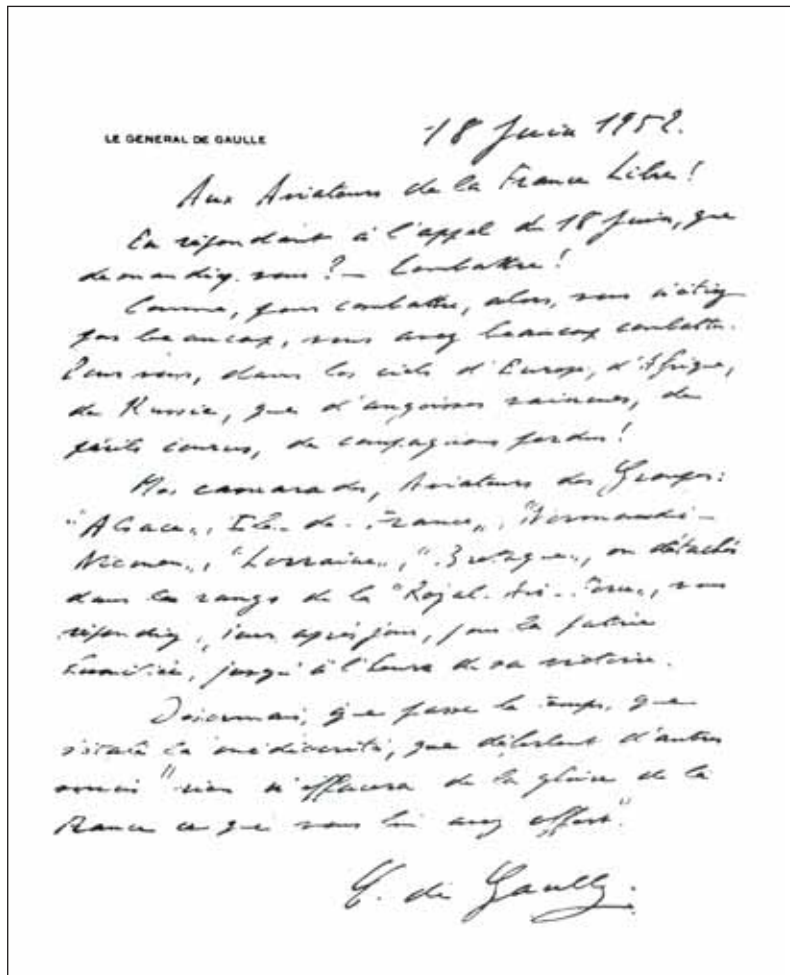 LE GENERAL DE GAULLE
18 Juin 1952.
Aux Aviateurs de la France Libre !
En répondant à l'appel du 18 Juin, que
demandiez-vous ? – Combattre !
Comme, pour combattre, alors, vous n'étiez
pas beaucoup, vous avez beaucoup combattu.
Pour vous, dans les ciels d'Europe, d'Afrique,
de Russie, que d'angoisses vaincues, de
périls courus, de compagnons perdus !
Mes camarades, Aviateurs des Groupes :
"Alsace", Ile-de-France", "Normandie-
Niemen", "Lorraine", "Bretagne", ou détachés
dans les rangs de la "Royal-Air-Force", vous
répondiez, jour après jour, pour la patrie
humiliée, jusqu'à l'heure de sa victoire.
Désormais, que passe le temps, que
s'étale la médiocrité, que déferlent d'autres
"rien n'effacera de la gloire de la
France ce que vous lui avez offert."
C. de Gaulle.